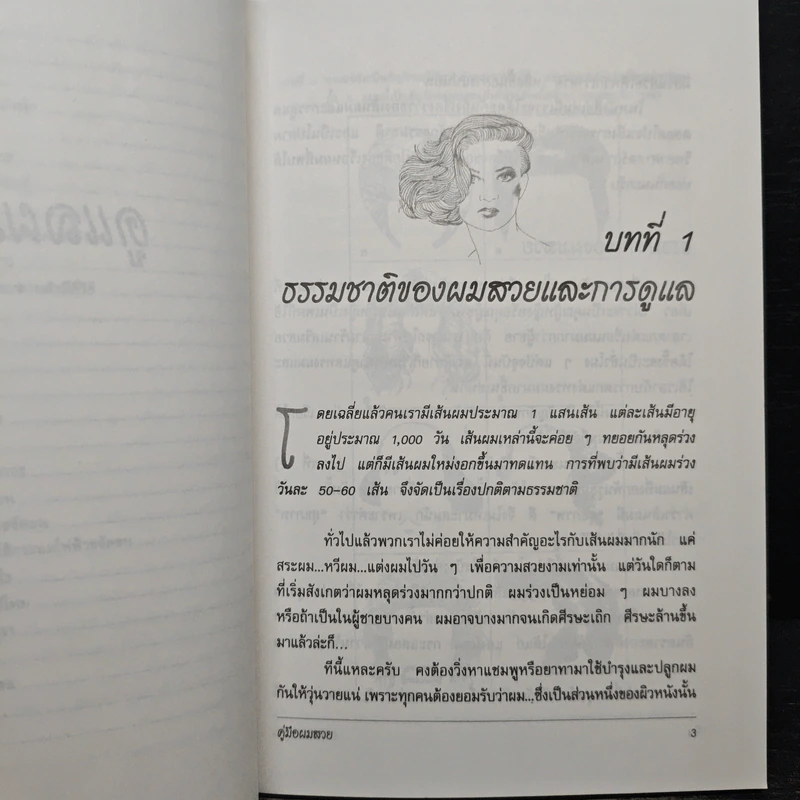 บทที่ 1
ธรรมชาติของผมสวยและการดูแล
โดยเฉลี่ยแล้วคนเรามีเส้นผมประมาณ 1 แสนเส้น แต่ละเส้นมีอายุ
อยู่ประมาณ 1,000 วัน เส้นผมเหล่านี้จะค่อย ๆ ทยอยกันหลุดร่วง
ลงไป แต่ก็มีเส้นผมใหม่งอกขึ้นมาทดแทน การที่พบว่ามีเส้นผมร่วง
วันละ 50-60 เส้น จึงจัดเป็นเรื่องปกติตามธรรมชาติ
ทั่วไปแล้วพวกเราไม่ค่อยให้ความสำคัญอะไรกับเส้นผมมากนัก แค่
สระผม...หวีผม...แต่งผมไปวัน ๆ เพื่อความสวยงามเท่านั้น แต่วันใดก็ตาม
ที่เริ่มสังเกตว่าผมหลุดร่วงมากกว่าปกติ ผมร่วงเป็นหย่อม ๆ ผมบางลง
หรือถ้าเป็นในผู้ชายบางคน ผมอาจบางมากจนเกิดศีรษะเถิก ศีรษะล้านขึ้น
มาแล้วล่ะก็...
ทีนี้แหละครับ คงต้องวิ่งหาแชมพูหรือยาทามาใช้บำรุงและปลูกผม
กันให้วุ่นวายแน่ เพราะทุกคนต้องยอมรับว่าผม...ซึ่งเป็นส่วนหนึ่งของผิวหนังนั้น
คู่มือผมสวย 3